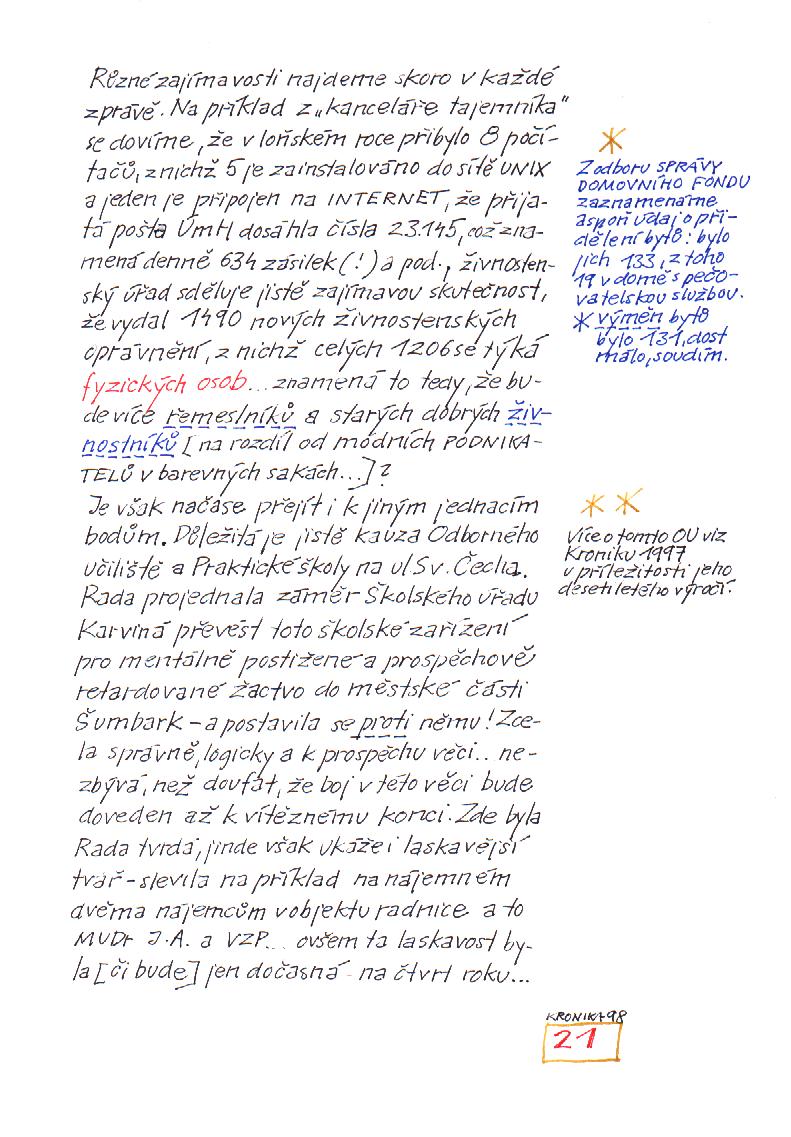 Různé zajímavosti najdeme skoro v každé
zprávě. Na příklad z „kanceláře tajemníka"
se dovíme, že v loňském roce přibylo 8 počí-
tačů, z nichž 5 je zainstalováno do sítě UNIX
a jeden je připojen na INTERNET, že přija-
tá pošta ÚmH dosáhla čísla 23.145, což zna-
mená denně 634 zásilek (!) a pod., živnosten-
ský úřad sděluje jistě zajímavou skutečnost,
že vydal 1490 nových živnostenských
oprávnění, z nichž celých 1206 se týká
fyzických osob... znamená to tedy, že bu-
de více řemeslníků a starých dobrých živ-
nostníků [na rozdíl od módních PODNIKA-
TELŮ v barevných sakách...]?
Je však načase přejít i k jiným jednacím
bodům. Důležitá je jistě kauza Odborného
učiliště a Praktické školy na ul Sv. Čecha.
Rada projednala záměr Školského úřadu
Karviná převést toto školské zařízení
pro mentálně postižené a prospěchově
retardované žactvo do městské části
Šumbark – a postavila se proti němu! Zce-
la správně, logicky a k prospěchu věci.. ne-
zbývá, než doufat, že boj v této věci bude
doveden až k vítěznému konci. Zde byla
Rada tvrdá, jinde však ukáže i laskavější
tvář – slevila na příklad na nájemném
dvěma nájemcům v objektu radnice a to
MUDr J.A. a VZP... ovšem ta laskavost by-
la [či bude] jen dočasná - na čtvrt roku...
*
Z odboru SPRÁVY
DOMOVNÍHO FONDU
zaznamenáme
aspoň údaj o při-
dělení bytů: bylo
jich 133, z toho
19 v domě s pečo-
vatelskou službou.
* výměn bytů
bylo 131, dost
málo, soudím.
* *
Více o tomto OU viz
Kroniku 1997
u příležitosti jeho
desetiletého výročí.
KRONIKA 98
21